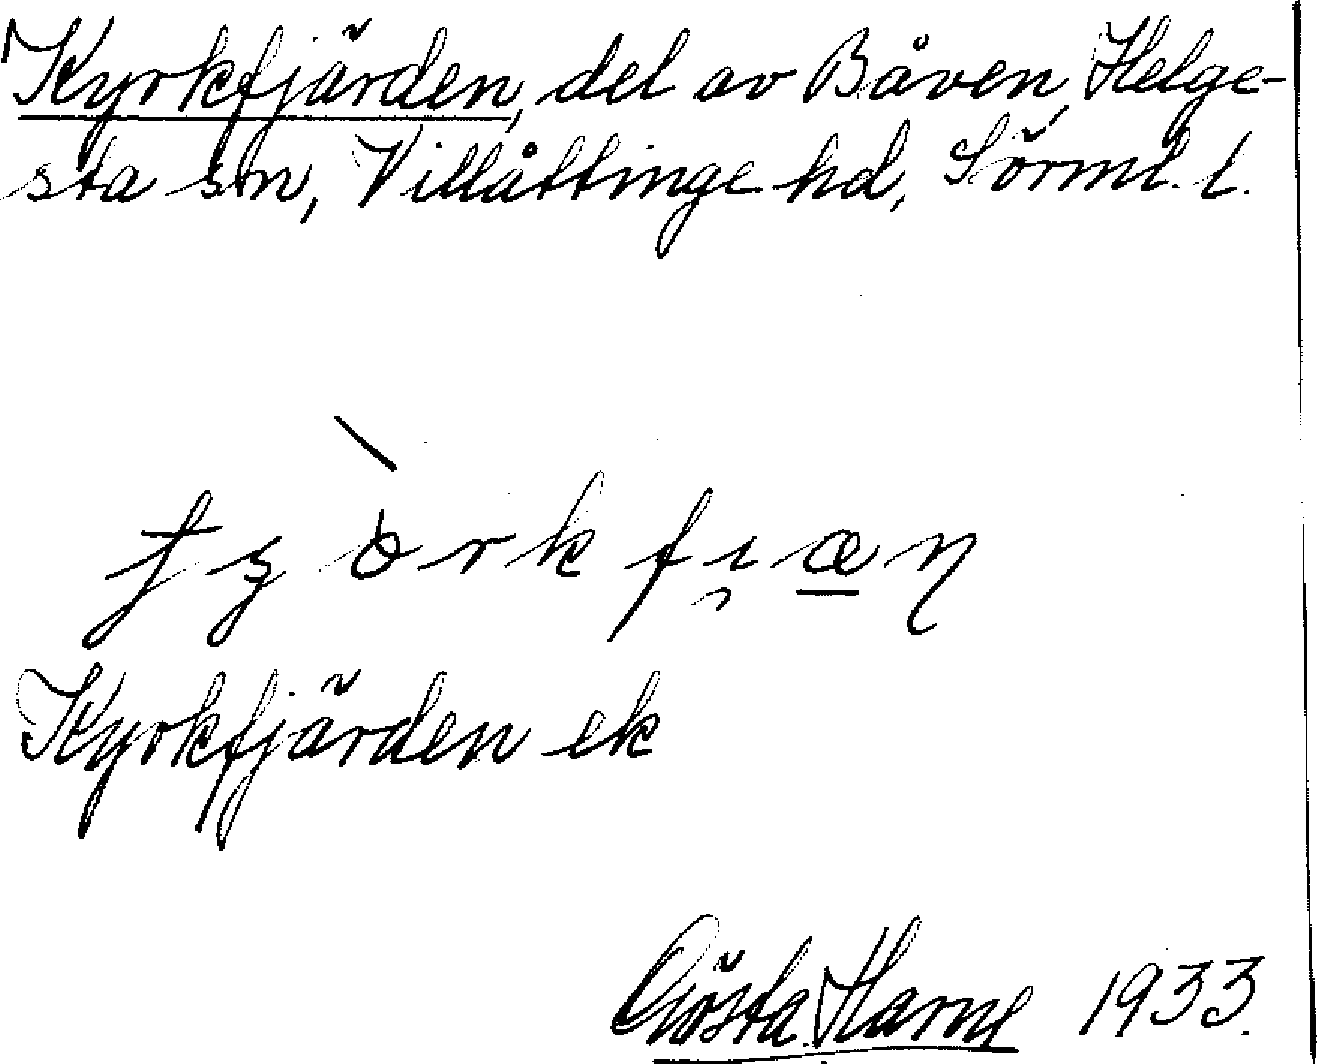 Kyrkfjärden, del av Båven, Helge-
sta sn, Villåttinge hd, Sörml. l.
Kyrkfjärden ek
Gösta Harne 1933.